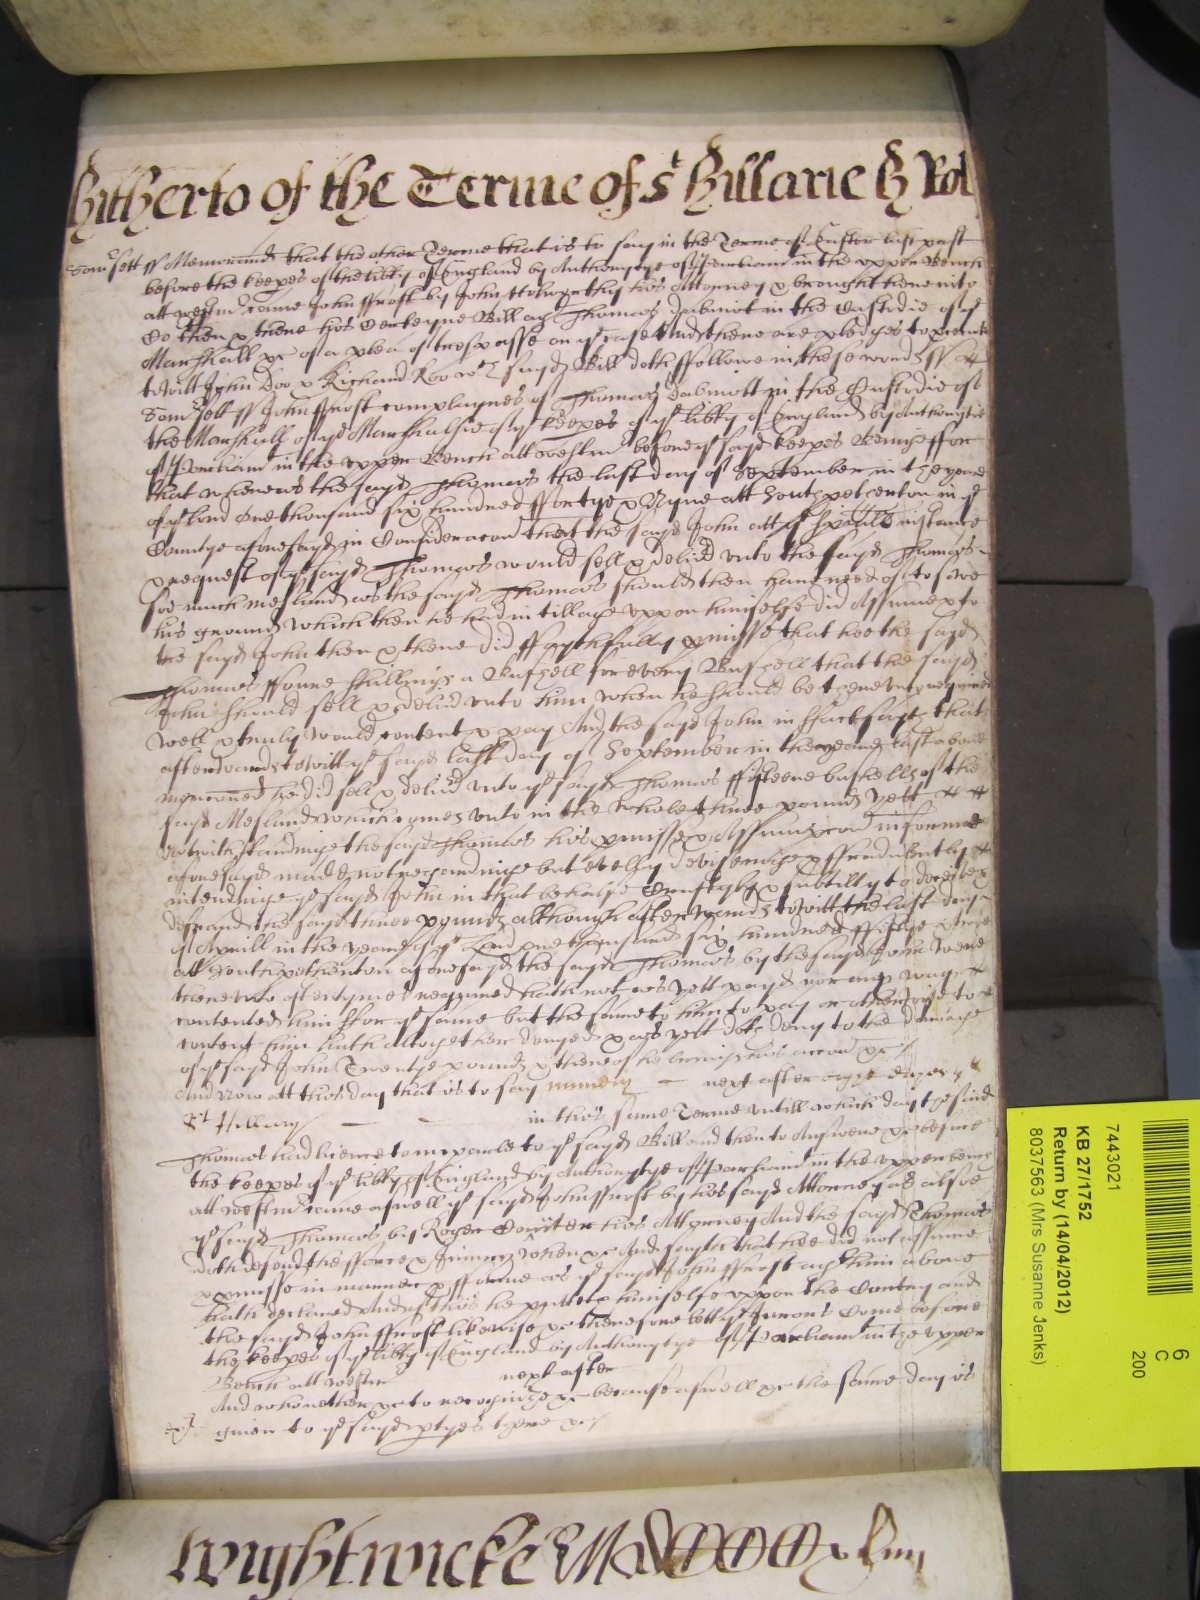 hitherto of the Terme of St Hillarie
Som'sett ss Memorand that the other Terme that is to say in the Terme of Easter last past
before the keepers of the libtty of England by Authoritye of Parliam in the upper Bench
att Westm came John ffrost by John his Attorney & brought here into
Co then & there his Certeyne Bill ag Thomas Dabinot in the Custodie of ye
Marshall &c of a plea of trespasse on ye case And there are pledges to
towitt John Doo & Richard Roo wch sayd Bill doth followe in these words ss
Som'sett ss John ffrost complaynes of Thomas Dabinott in the Custodie of
the Marshall of ye Marshalsie of ye keepes of ye libtty of England by Authoritie
of Parliam in the upper Bench att Westm before ye sayd keepes Being ffor
that whereas the sayd Thomas the last day of September in the yeare
of or lord One thousand six hundred ffortye & Nyne att South petherton in ye
Countye aforesayd in Consideracon that the sayd John att ye instance
& request of ye sayd Thomas would sell & deliv'd unto the sayd Thomas
soe much as the sayd Thomas should then have need of to sowe
his ground which then he had in tillage uppon himselfe did Assume & to
the sayd John then & there did ffaythfully p'misse that hee the sayd
Thomas ffoure shillings a Bushell for every Bushell that the sayd
John should sell & deliv'd unto him when he should be thereunto required
well & truly would content & pay And the sayd John in ffact sayth that
afterwards towitt ye sayd last day of September in the yeare last above
mencioned he did sell & deliv'd unto ye sayd Thomas ffifteene bushells of the
sayd which comes unto in the whole three pounds yett
notwithstandinge the sayd Thomas his p'misse & Assumpcon in forme
aforesayd made not regardinge but devisinge & ffraudulently
intendinge ye sayd John in that behalfe Craftyly & subtilly to deceive &
defraud the sayd three pounds although afterwards towitt the last day
of Aprill in the yeare of or Lord one thousand six hundred ffiftye
att South petherton aforesayd the sayd Thomas by the sayd John were
thereunto oftentymes required hath not as yett payd nor any way
contented him ffor ye same but the same to him to pay or otherwise to
content him hath altogether denyed & as yett doth deny to the damage
of ye sayd John Twentye pounds & thereof he brings his &c
And now att this day that is to say next after
St Hillary in this same Terme untill which day the said
Thomas had licence to imparle to ye sayd Bill and then to Answere &c before
the keepes of ye libtty of England by Authoritye of Parliam in the upper bench
att Westm came aswell ye sayd John ffrost by his sayd Attorney as alsoe
ye sayd Thomas by Roger his Attorney And the sayd Thomas
doth defend the fforce & Iniury when &c And sayth that hee did not assume
& p'misse in manner & fforme as ye sayd John ffrost ag him above
hath declared And of this he putteth himselfe uppon the Contry and
the sayd John ffrost likewise &c therefore lett ye Jurours Come before
the keepes of ye libtty of England by Authoritye of Parliam in the upper
Bench att Westm next after
And who neither &c to recognize &c because aswell &c the same day is
given to ye sayd ptyes there &c
Wightwicke
7443021
KB 27/1752
Return by (14/04/2012)
8037563 (Mrs Susanne Jenks)
6
C
200